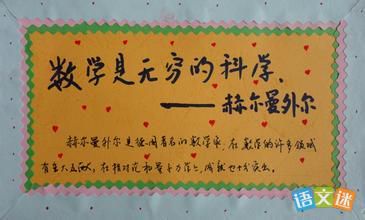 数学是无穷的科学、
——赫尔曼外尔
赫尔曼外尔是德国著名的数学家,在数学的许多领域
有重大贡献,在相对论和量子力学上,成就也十分突出。
语文迷